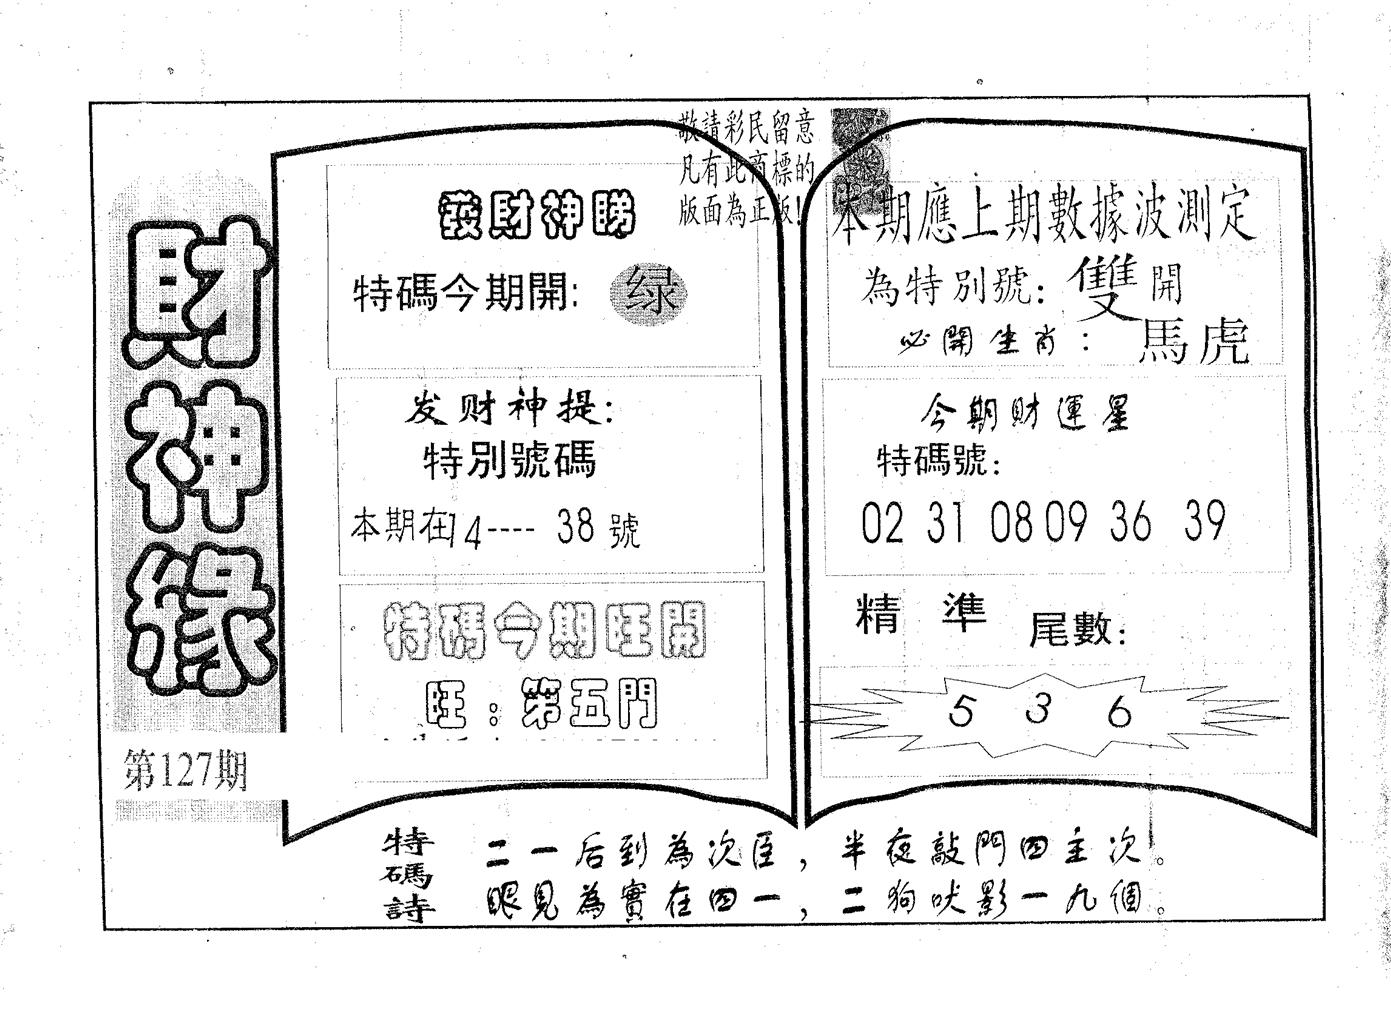 財神緣
第127期
敬請彩民留意
凡有此商標的
版面為正版!
發財神睇
特碼今期開: 绿
发财神提:
特別號碼
本期在14---- 38號
特碼今期旺開
旺:第五門
本期應上期數據波測定
為特別號: 雙開
必開生肖: 馬虎
今期財運星
特碼號:
02 31 08 09 36 39
精準 尾數:
5 3 6
特碼詩
二一后到為次臣,半夜敲門四主次。
眼見為實在四一,二狗吠影一九個。